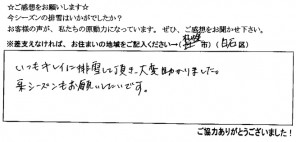 ☆ご感想をお願いします☆
今シーズンの排雪はいかがでしたか?
お客様の声が、私たちの原動力になっています。ぜひ、ご感想をお聞かせ下さい。
※差支えなければ、お住まいの地域をご記入ください→(札幌市)(白石区)
いつもキレイに排雪して頂き、大変助かりました。
来シーズンもお願いしたいです。
ご協力ありがとうございました!